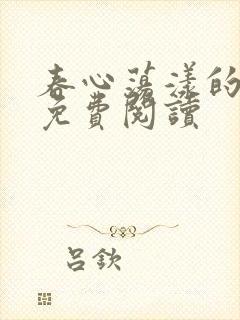 春心蕩漾的
免費閱讀
呂欽